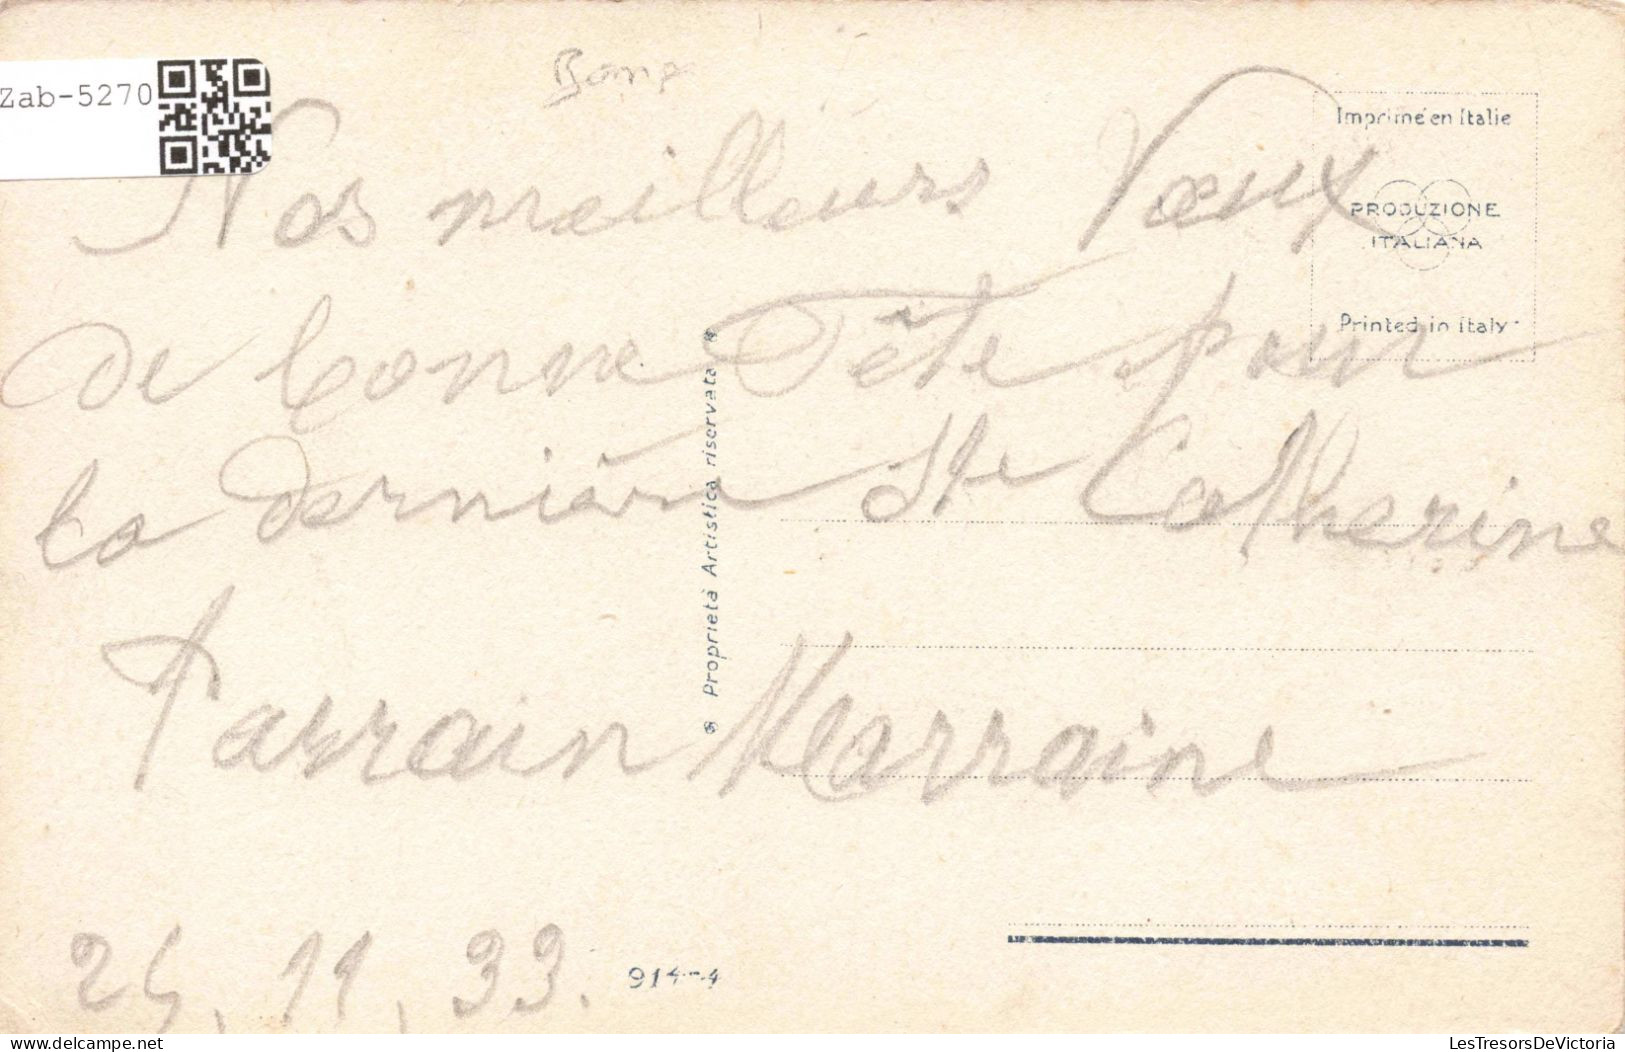 Zab-5270
Nos meilleurs Vœux
de bonne Fête pour
la dernière Ste Catherine
Parrain Marraine
24.11.33.
Imprimé en Italie
PRODUZIONE
ITALIANA
Printed in Italy
Proprietà Artistica riservata
914-4
delcampe.net
LesTresorsDeVictoria